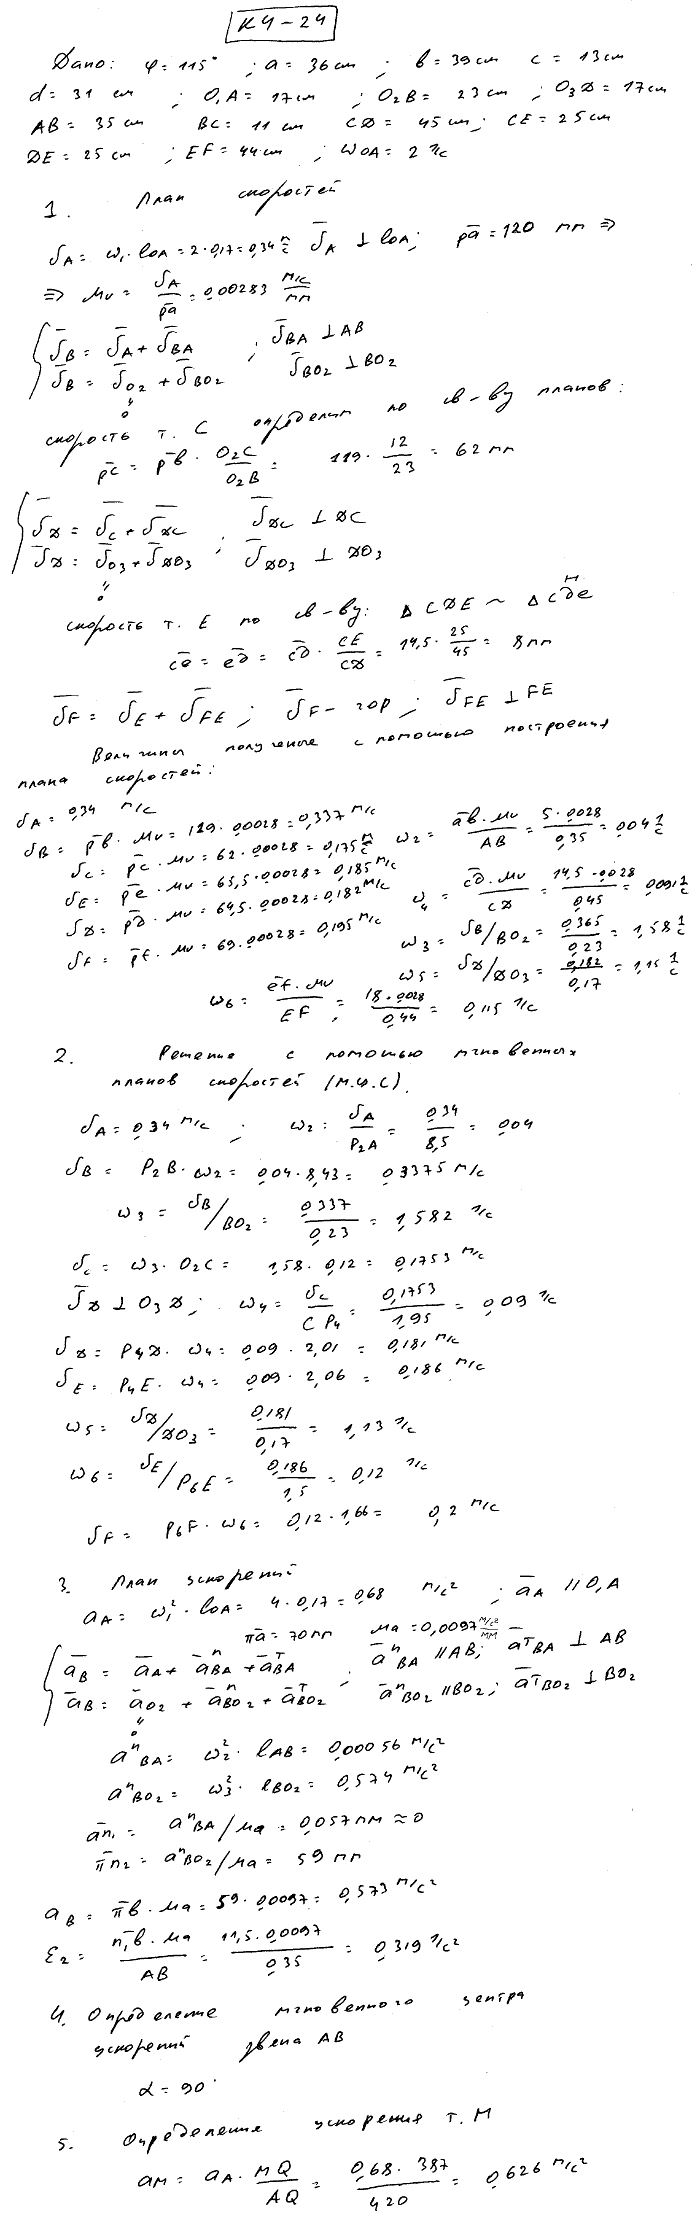 К4-24
Дано: φ=115° ; a=36 см ; b=39 см c=13 см
d=31 см ; O₁A=17 см ; O₂B=23 см ; O₃D=17 см
AB=35 см BC=11 см CD=45 см; CE=25 см
DE=25 см ; EF=44 см ; ωOA=2 1/с
1. План скоростей
υA=ω₁·lOA=2·0,17=0,34 м/с ῡA ⊥ lOA; p̄a=120 мм ⇒
⇒ μv= υA/p̄a = 0,00283 (м/с)/мм
ῡB=ῡA+ῡBA ; ῡBA ⊥ AB
ῡB=ῡO2+ῡBO2 ῡBO2 ⊥ BO2
0
скорость т. C определим по св-ву планов:
p̄c=p̄b· O2C/O2B = 119· 12/23 = 62 мм
ῡD=ῡC+ῡDC ; ῡDC ⊥ DC
ῡD=ῡO3+ῡDO3 ῡDO3 ⊥ DO3
0
скорость т. E по св-ву: Δ CDE ~ Δ cde
c̄e=ēd=c̄d· CE/CD = 14,5· 25/45 = 8 мм
ῡF=ῡE+ῡFE ; ῡF - гор ; ῡFE ⊥ FE
Величины полученые с помощью построения
плана скоростей:
υA=0,34 м/с
υB= p̄b·μv=119·0,0028=0,337 м/с ω2= āb·μv/AB = 5·0,0028/0,35 = 0,04 1/с
υC= p̄c·μv=62·0,0028=0,175 м/с
υE= p̄e·μv=65,5·0,0028=0,185 м/с ω4= c̄d·μv/CD = 14,5·0,0028/0,45 = 0,091 1/с
υD= p̄d·μv=64,5·0,0028=0,182 м/с
υF= p̄f·μv=69·0,0028=0,195 м/с ω3=υB/BO2= 0,365/0,23 = 1,58 1/с
ω5=υD/DO3= 0,182/0,17 = 1,15 1/с
ω6= ēf·μv/EF = 18·0,0028/0,44 = 0,115 1/с
2. Решение с помощью мгновенных
планов скоростей (М.Ц.С).
υA=0,34 м/с ; ω2= υA/P2A = 0,34/8,5 = 0,04
υB= P2B·ω2=0,04·8,43=0,3375 м/с
ω3= υB/BO2= 0,337/0,23 = 1,582 1/с
υC=ω3·O2C= 1,58·0,12=0,1753 м/с
ῡD ⊥ O3D; ω4= υC/CP4 = 0,1753/1,95 = 0,09 1/с
υD= P4D·ω4=0,09·2,01=0,181 м/с
υE= P4E·ω4=0,09·2,06=0,186 м/с
ω5= υD/DO3= 0,181/0,17 = 1,13 1/с
ω6= υE/P6E= 0,186/1,5 = 0,12 1/с
υF= P6F·ω6=0,12·1,66= 0,2 м/с
3. План ускорений
aA=ω₁²·lOA=4·0,17=0,68 м/с² ; āA // O₁A
π̄a=70 мм μa=0,0097 (м/с²)/мм
āB=āA+āⁿBA+āᵀBA ; āⁿBA // AB; āᵀBA ⊥ AB
āB=āO2+āⁿBO2+āᵀBO2 āⁿBO2 // BO2; āᵀBO2 ⊥ BO2
0
aⁿBA= ω2²·lAB=0,00056 м/с²
aⁿBO2= ω3²·lBO2=0,574 м/с²
ān₁= aⁿBA/μa=0,057 мм ≈0
π̄n2= aⁿBO2/μa= 59 мм
aB= π̄b·μa=59·0,0097=0,573 м/с²
ε2= n̄₁b·μa/AB = 11,5·0,0097/0,35 = 0,319 1/с²
4. Определение мгновенного центра
ускорений звена AB
α=90°
5. Определение ускорения т. M
aM= aA· MQ/AQ = 0,68·387/420 = 0,626 м/с²